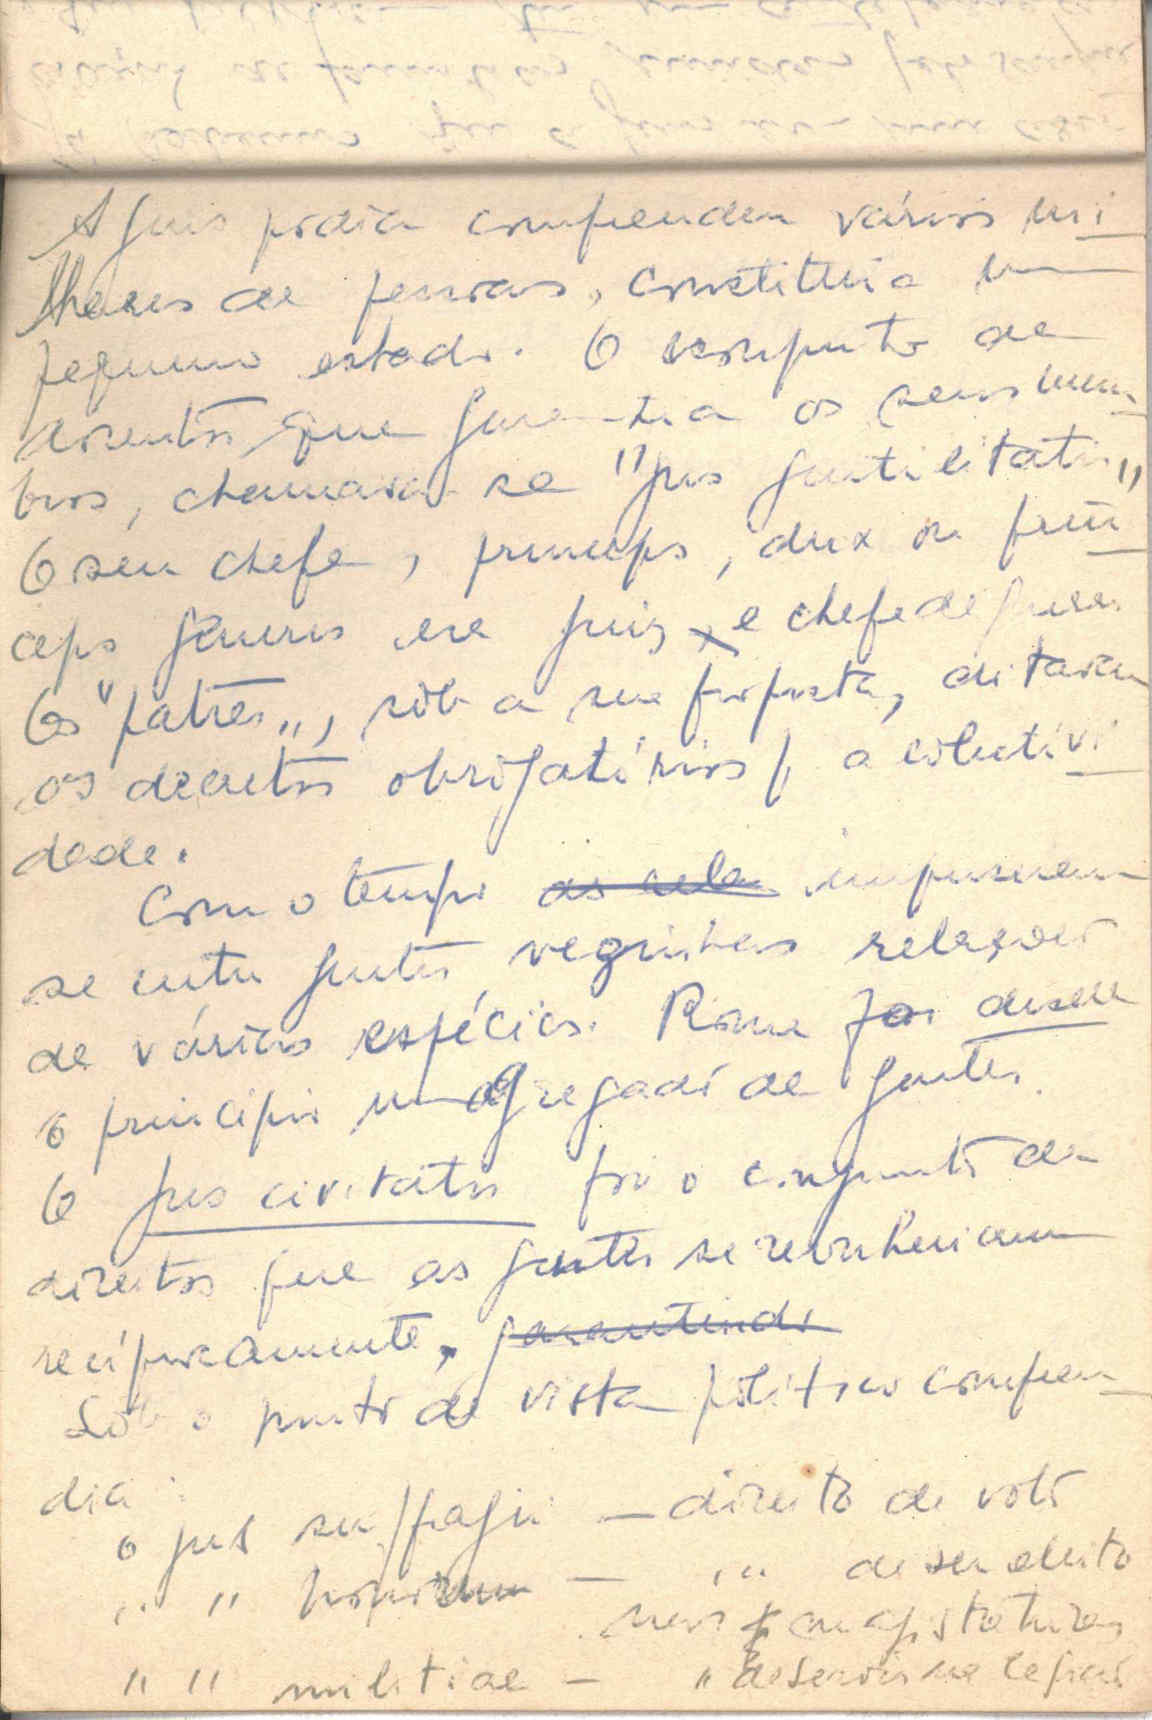 A gens podia compreender vários mi
lhares de pessoas, constituia um
pequeno estado. O conjunto de
direitos que garantia os seus mem
bros, chamava-se "jus gentilitatis"
O seu chefe, princeps, dux ou prin
ceps gentis era juiz e chefe de guerra
Os "patres", sob a sua proposta, ditavam
os decretos obrigatórios p. a colectivi
dade.
Com o tempo as cele impuseram-
se entre gentes vezinhas relações
de várias espécies. Roma foi desde
o principio um agregado de gentes.
O jus civitatis foi o conjunto de
direitos que as gentes se reconheciam
reciprocamente, garantindo
Sob o ponto de vista politico compreen
dia:
o jus suffragii - direito de voto
" " honorum - " de ser eleito
nas magistraturas
" " militiae - " de servir na legião